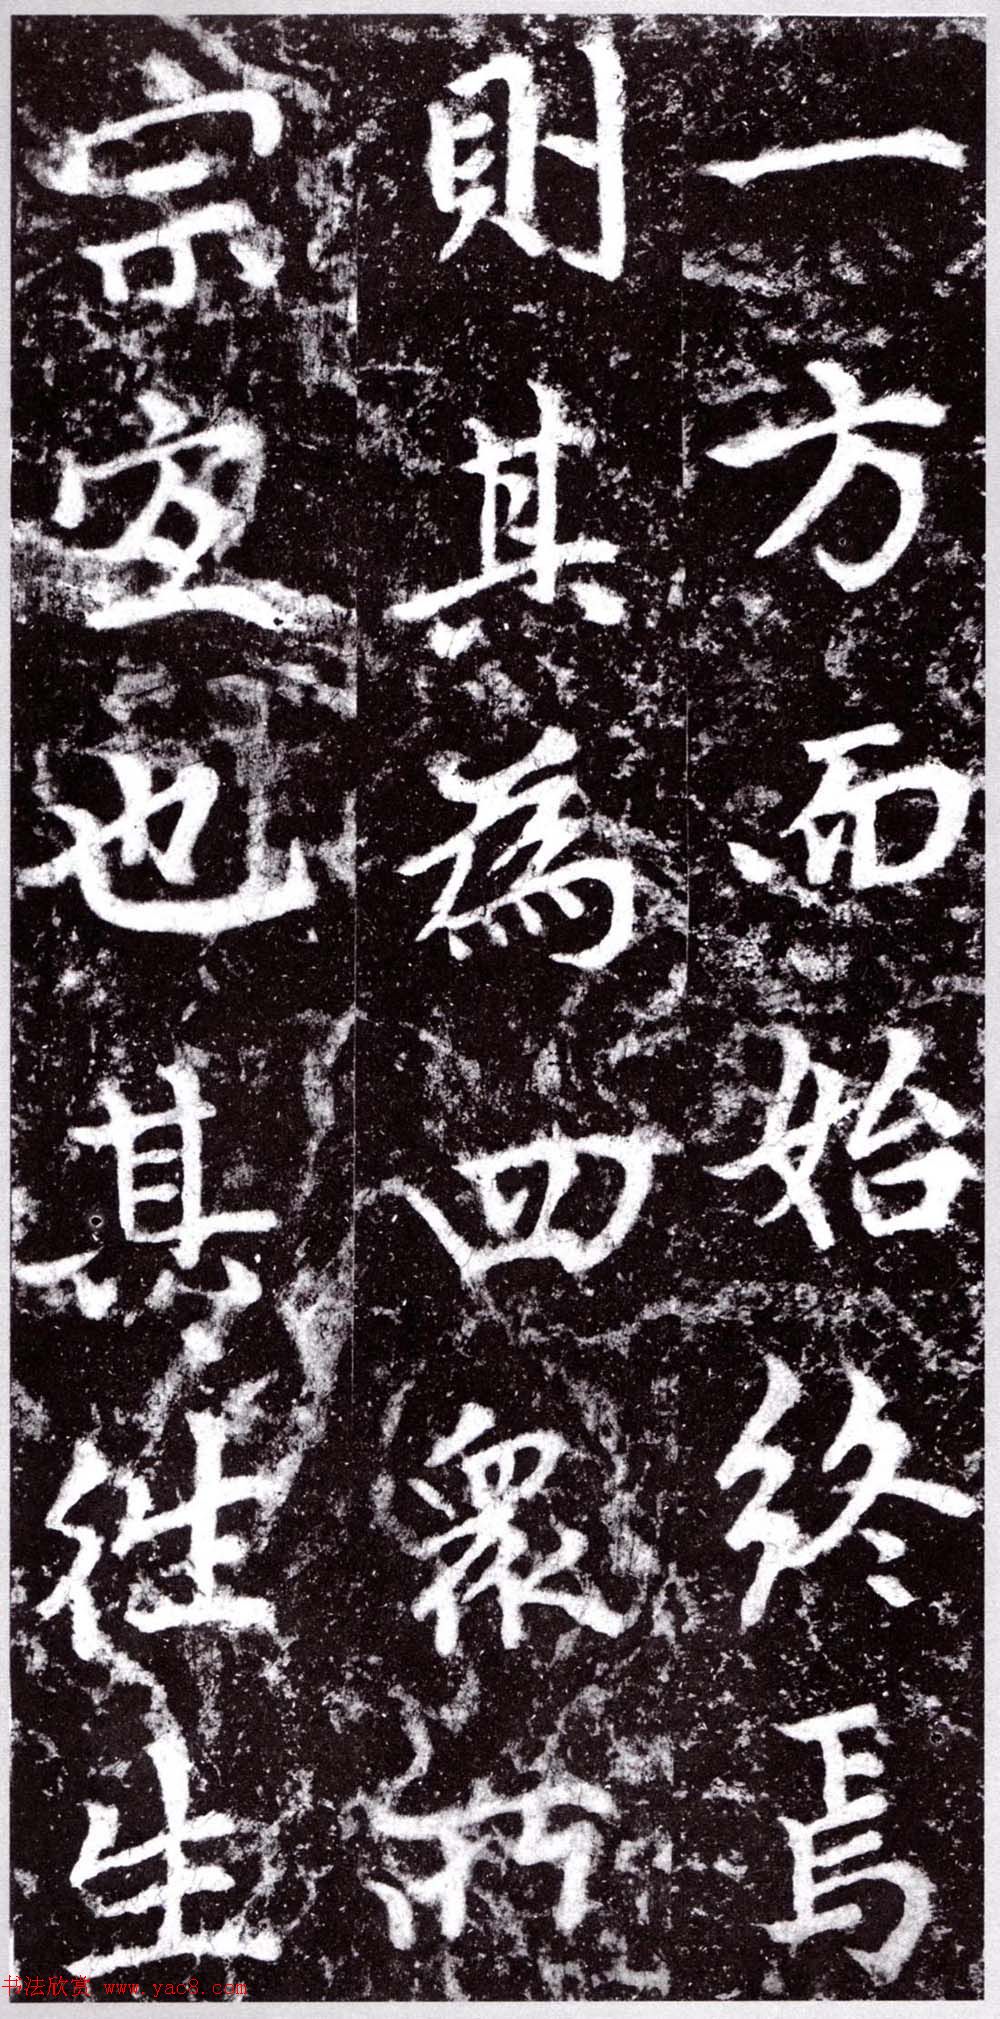 一方而始終焉
則其為四衆所
宗宜也其徃生
书法欣赏 www.yac8.com